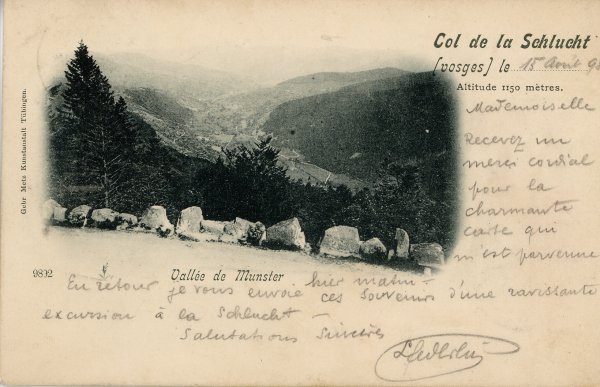 Col de la Schlucht
(vosges) le 15 Août 98
Altitude 1150 mètres.
Mademoiselle
Recevez un
merci cordial
pour la
charmante
carte qui
m'est parvenue
hier matin -
Gebr Metz Kunstanstalt Tübingen.
9892
Vallée de Munster
En retour je vous envoie ces souvenirs d'une ravissante
excursion à la Schlucht -
Salutations Sincères